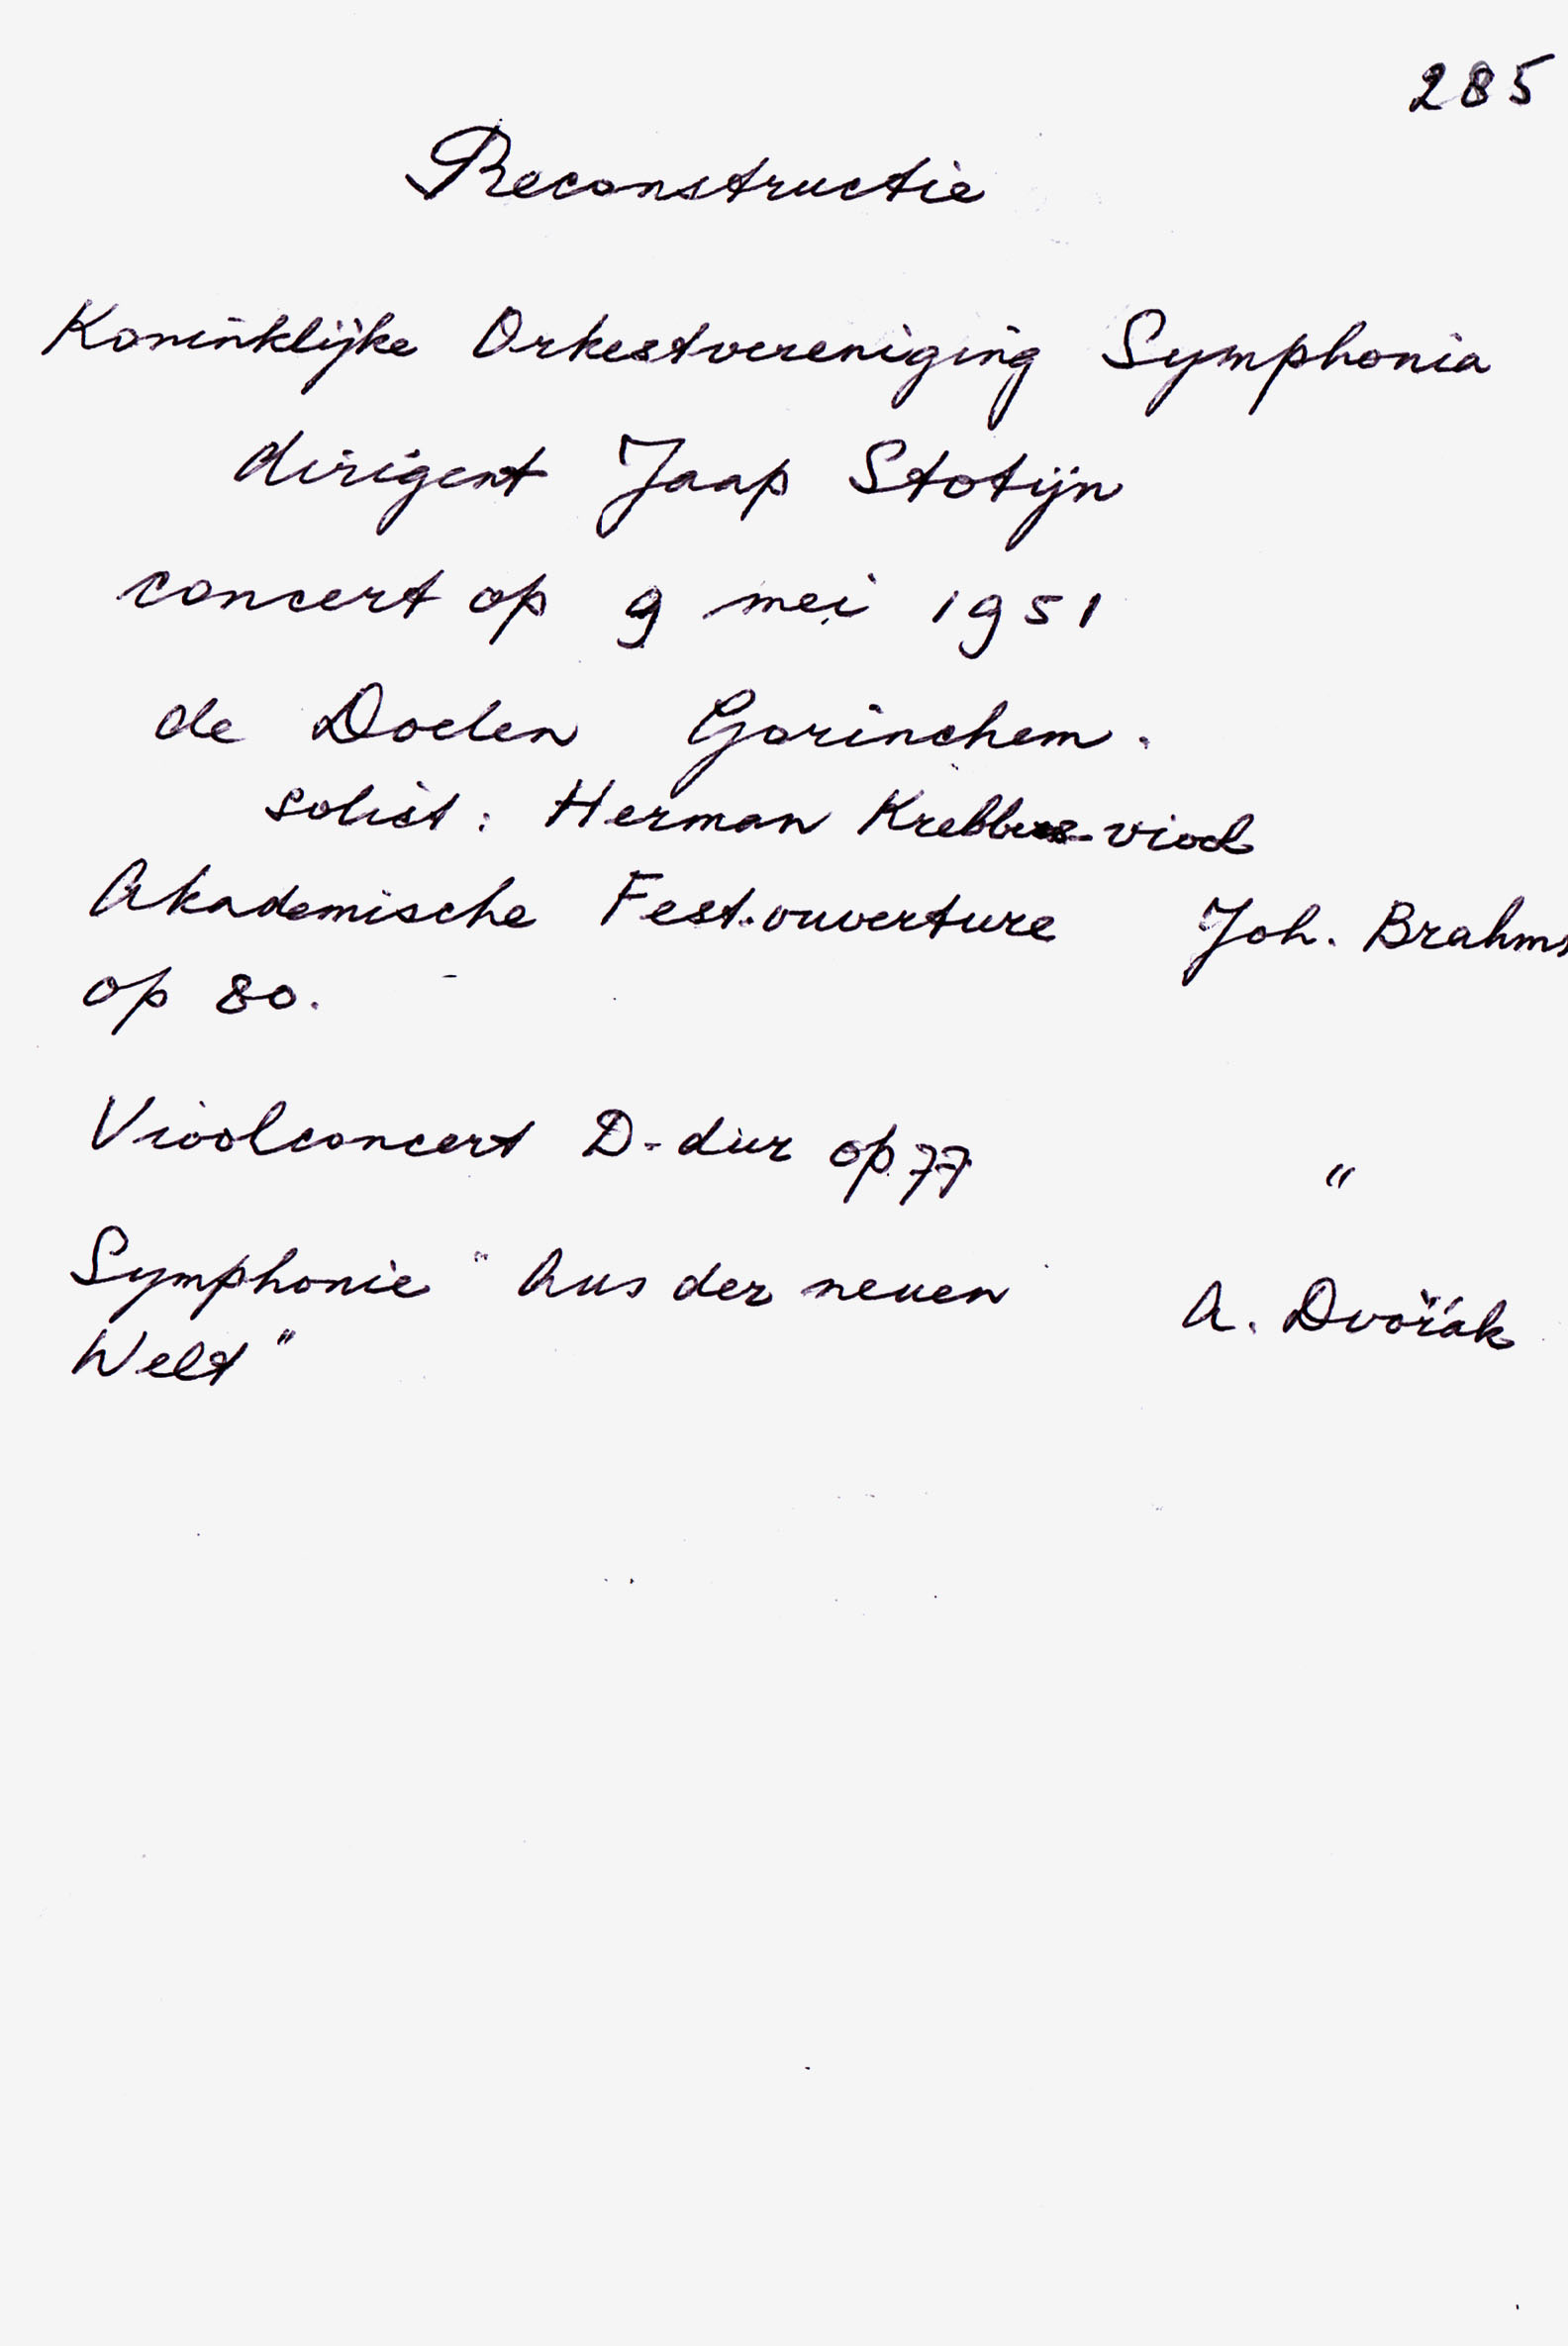 285
Reconstructie
Koninklijke Orkestvereniging Symphonia
dirigent Jaap Stotijn
concert op 9 mei 1951
de Doelen Gorinchem.
solist: Herman Krebbers - viool
Akademische Fest-ouverture Joh. Brahms
op 80.
Vioolconcert D-dur op 77 "
Symphonie "Aus der neuen A. Dvořák
Welt"